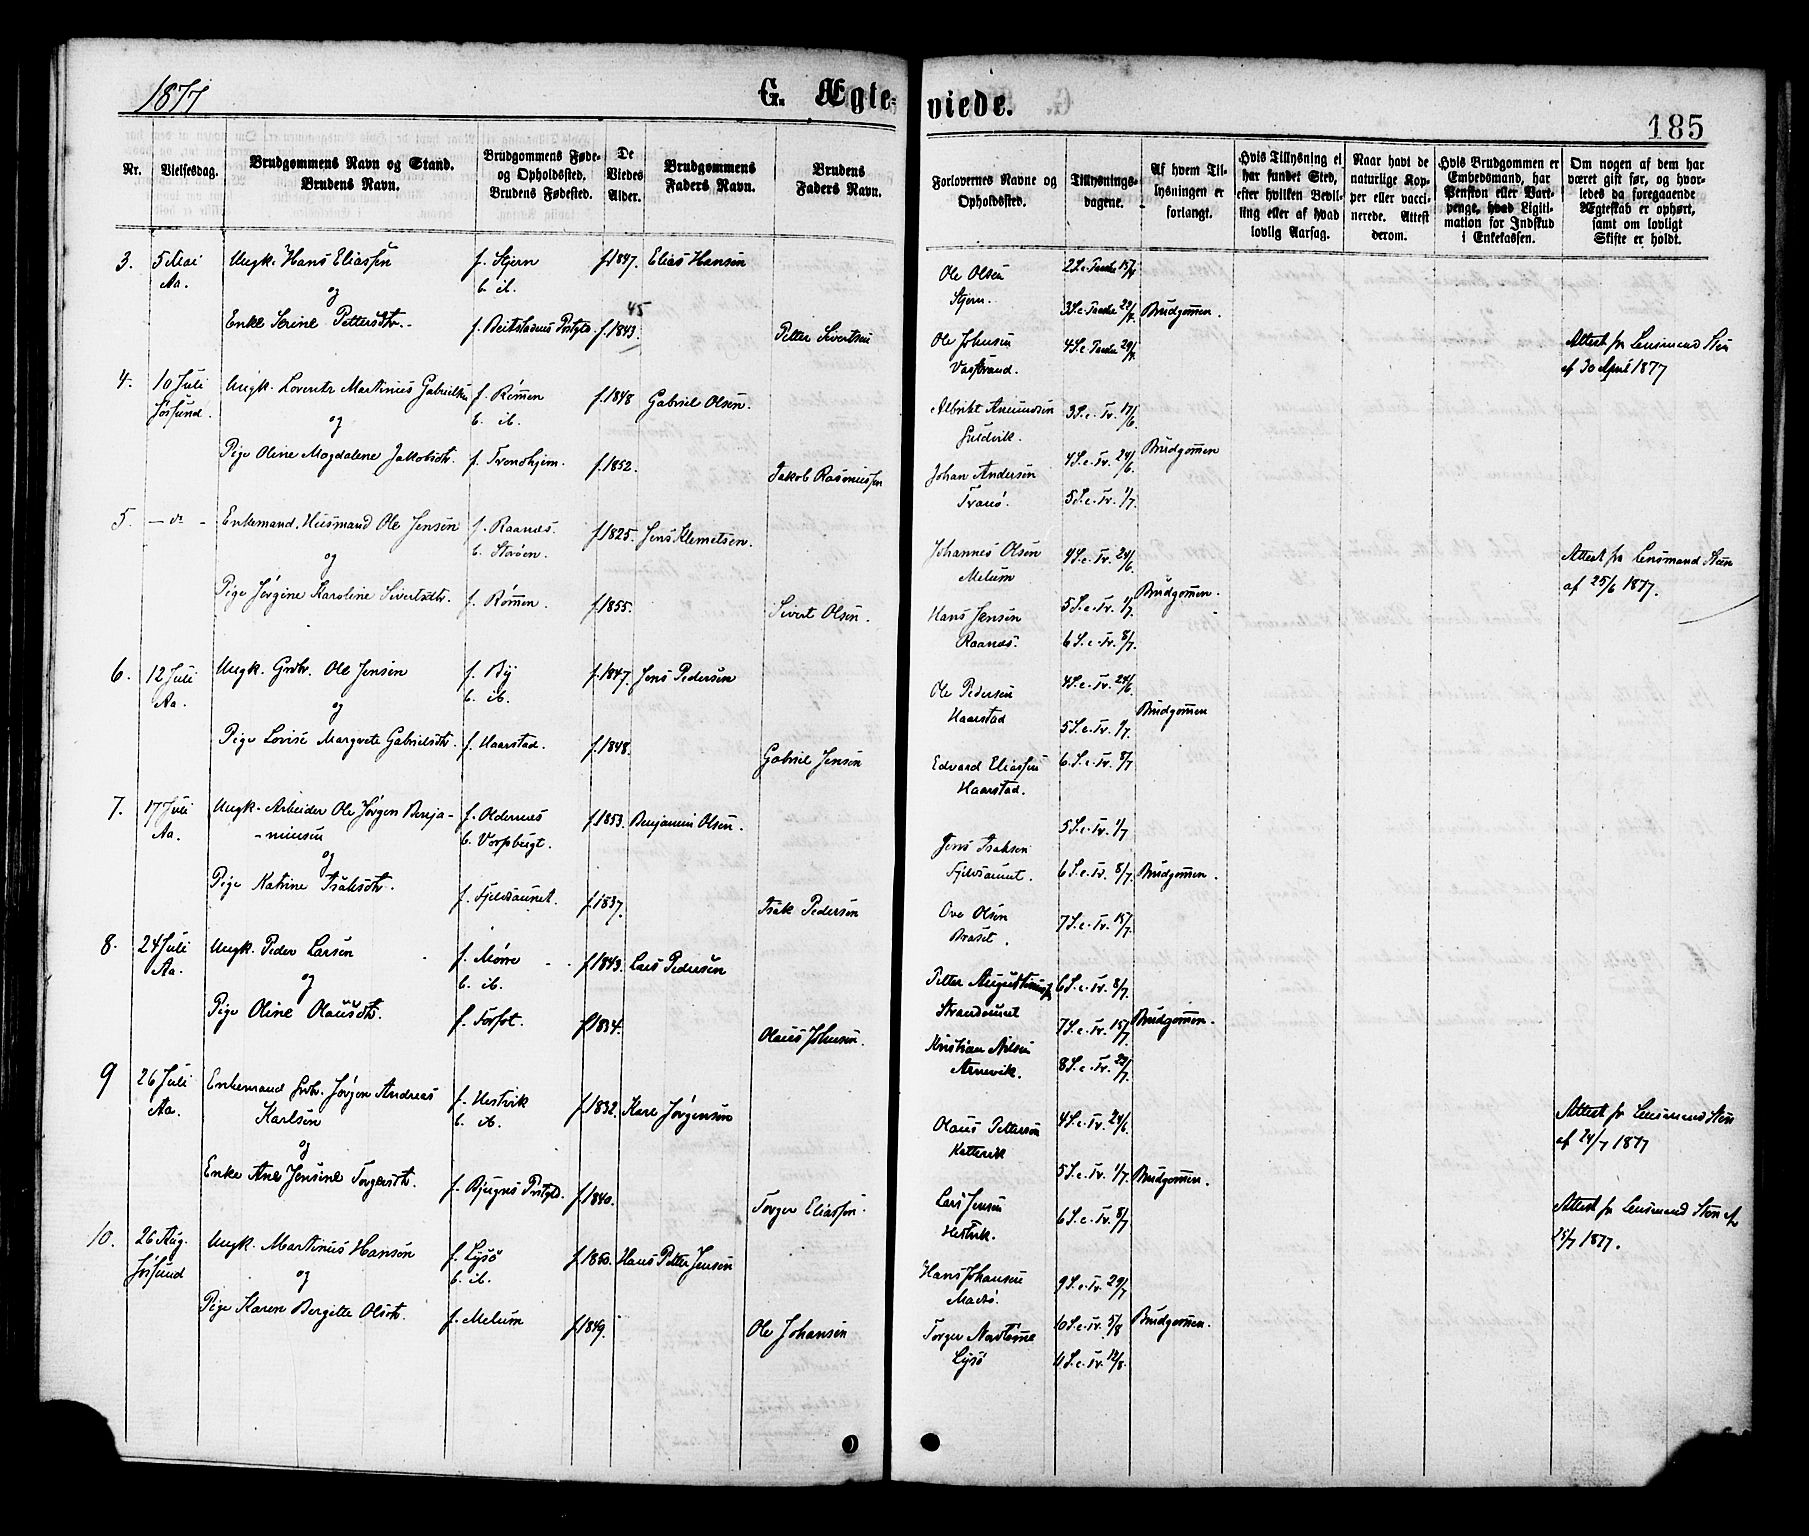 1877
G. Ægte-
viede.
185
Nr.
Vielsesdag.
Brudgommens Navn og Stand.
Brudens Navn.
Brudgommens Føde-
og Opholdssted,
Brudens Fødested.
De
Viedes
Alder.
Brudgommens
Faders Navn.
Brudens
Faders Navn.
Forlovernes Navne og
Opholdssted.
Tillysnings-
dagene.
Af hvem Til-
lysningen er
forlangt.
Hvis Tillysning ei
har fundet Sted,
efter hvilken Bevil-
ling eller af hvad
lovlig Aarsag.
Naar havt de
naturlige Kop-
per eller vacci-
nerede. Attest
derom.
Hvis Brudgommen er
Embedsmand, har
Pension eller Vart-
penge, hvad Ligiti-
mation for Indskud
i Enkekassen.
Om nogen af dem har
været gift før, og hvor-
ledes da foregaaende
Ægteskab er ophørt,
samt om lovligt
Skifte er holdt.
3. 5 Mai Ungk. Hans Eliassen f. Stjern f.1847. Elias Hansen
Aa. b. ib.
og
45
Enke Serine Pettersdtr. f. Beitstadens Prstgld. f.1843. Petter Sivertsen
Ole Olsen 2 S.e. Paaske 15/4
Stjern. 3 S.e. Paaske 22/4. Brudgommen.
Ole Johnsen 4 S.e. Paaske 29/4 Attest fr Lensmand Sten
Vasstrand. af 30 April 1877
4. 10 Juli Ungk. Lorents Martinus Gabrielsen f. Rømmen f.1848 Gabriel Olsen.
Jøssund. b. ib.
og
Pige Oline Magdalene Jakobsdtr. f. Trondhjem. f.1852. Jakob Rasmussen
Albrikt Amundsen 3 S.e. Tr. 17/6.
Guldvik.
4 S.e. Tr. 24/6. Brudgommen
Johan Andersen
Tranø. 5 S.e. Tr. 1/7.
5. — do — Enkemand. Husmand Ole Jensen f. Raanæs. f.1825. Jens Klemetsen.
b. Støen.
og
Pige Jørgine Karoline Sivertsdtr. f. Rømmen. f.1855. Sivert Olsen.
Johannes Olsen 4 S.e. Tr. 24/6. Attest fra Lensmand Steen
Melum af 25/6 1877.
Brudgommen.
Hans Jensen 5 S.e. Tr. 1/7
Raanæs. 6 S.e. Tr. 8/7.
6. 12 Juli Ungk. Grdbr. Ole Jensen f. By f.1847. Jens Pedersen
Aa. b. ib.
og
Pige Lovise Margrete Gabrielsdtr. f. Haarstad. f.1848. Gabriel Jensen
Ole Pedersen 4 S.e. Tr. 24/6
Haarstad Brudgommen
5 S.e. Tr. 1/7.
Edvard Eliassen 6 S.e. Tr. 8/7
Haarstad.
7. 17 Juli Ungk. Arbeider Ole Jørgen Benja- f. Oldernæs f.1853. Benjamin Olsen.
Aa. -minsen b. Vorpbergt.
og
Pige Katrine Isaksdtr. f. Fjeldsaunet. f.1837. Isak Pedersen
Jens Isaksen 5 S.e. Tr. 1/7
Fjeldsaunet. 6 S.e. Tr. 8/7. Brudgommen.
Ove Olsen 7 S.e. Tr. 15/7.
Braset.
8. 24 Juli Ungk. Peder Larsen f. Mørre f.1843. Lars Pedersen
Aa. b. ib.
og
Pige Oline Olausdtr. f. Forfot. f.1834. Olaus Johnsen.
Petter Augustinusen 6 S.e. Tr. 8/7.
Strandaunet
7 S.e. Tr. 15/7. Brudgommen.
Kristian Nilsen
Arnevik. 8 S.e. Tr. 22/7.
9 26 Juli Enkemand Grdbr. Jørgen Andreas f. Hestvik f.1832. Karl Jørgensen
Aa. Karlsen b. ib.
og
Enke Ane Jensine Torgersdtr. f. Bjugns Prstgld. f.1840. Torger Eliassen.
Olaus Pettersen 4 S.e. Tr. 24/6. Attest fr Lensmand Sten
Kottevik af 24/7 1877
5 S.e. Tr. 1/7. Brudgommen.
Lars Jensen 6 S.e. Tr. 8/7
Hestvik.
Attest fr Lensmand Sten af
15/7 1877.
10. 26 Aug. Ungk. Martinus Hansen f. Lysø f.1850. Hans Petter Jensen
Jøssund b. ib.
og
Pige Karen Bergitte Olsdtr. f. Melum f.1849. Ole Johansen
Hans Johansen 9 S.e. Tr. 29/7
Madsø.
10 S.e. Tr. 5/8 Brudgommen.
Torger
Lysø 11 S.e. Tr. 12/8.